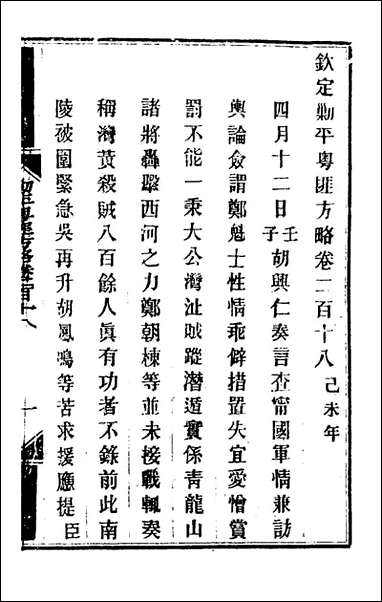 欽定勦平粵匪方略卷二百十八 己未年
四月十二日壬子胡興仁奏言查甯國軍情兼訪
輿論僉謂鄭魁士性情乖僻措置失宜愛憎賞
罰不能一秉大公灣沚賊蹤潛遁實係青龍山
諸將轟擊西河之力鄭朝棟等並未接戰輒奏
稱灣黃殺賊八百餘人眞有功者不錄前此南
陵被圍緊急吳再升胡鳳鳴等苦求援應提臣
一